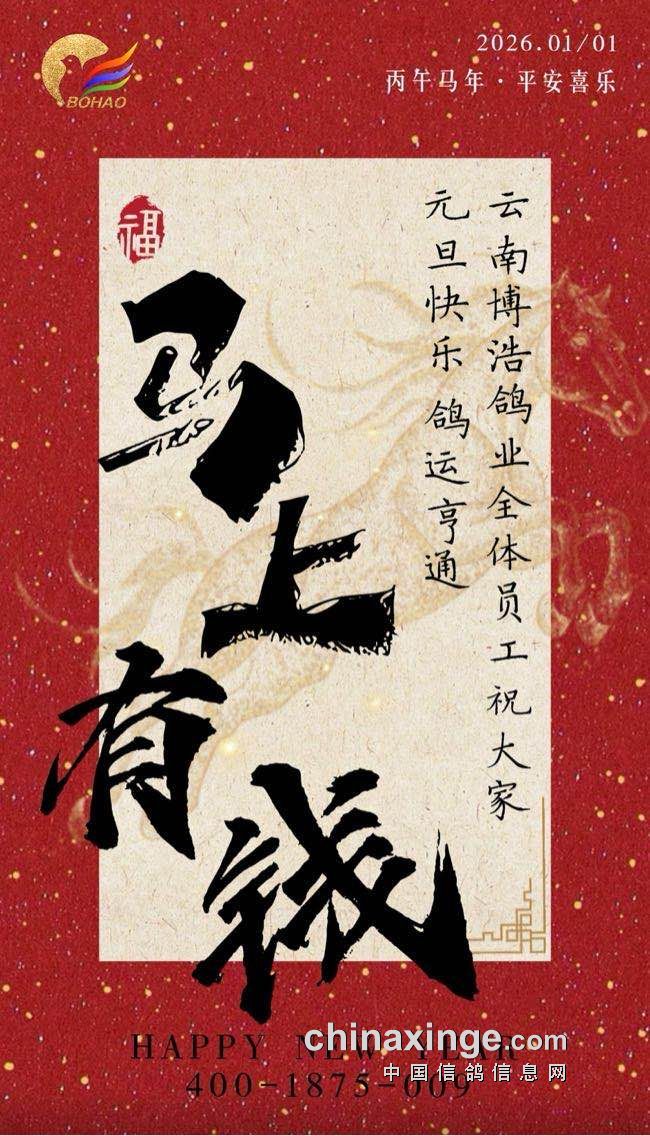 BOHAO
2026.01/01
丙午马年·平安喜乐
福
云南博浩鸽业全体员工祝大家
元旦快乐 鸽运亨通
马上有钱
HAPPY NEW YEAR
chinaxinge.com
中国信鸽信息网
400-1875-009